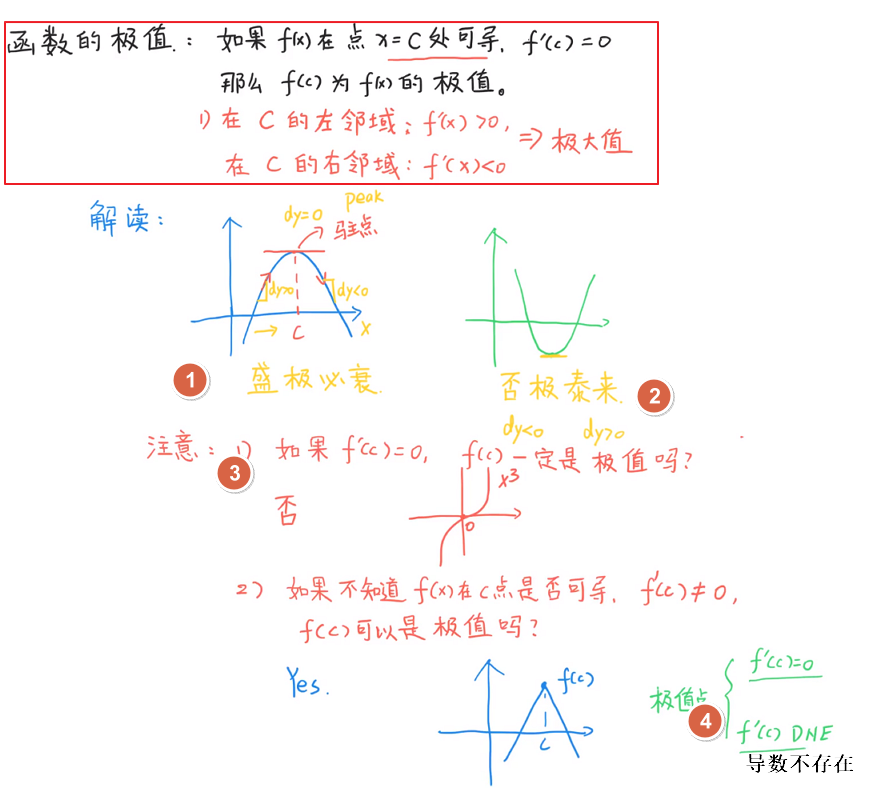 函数的极值：如果 f(x) 在点 x=C 处可导，f'(c)=0
那么 f(c) 为 f(x) 的 极值。
1) 在 C 的左邻域：f'(x)>0,
在 C 的右邻域：f'(x)<0
=> 极大值
解读：
peak
dy=0
驻点
dy>0
dy<0
C
x
1
盛极必衰
否极泰来.
2
dy<0 dy>0
注意：1) 如果 f'(c)=0, f(c) 一定是 极值吗？
3
x³
否
0
2) 如果不知道 f(x) 在c点是否可导，f'(c)≠0,
f(c)可以是 极值吗？
Yes.
f(c)
c
极值点
4
f'(c)=0
f'(c) DNE
导数不存在